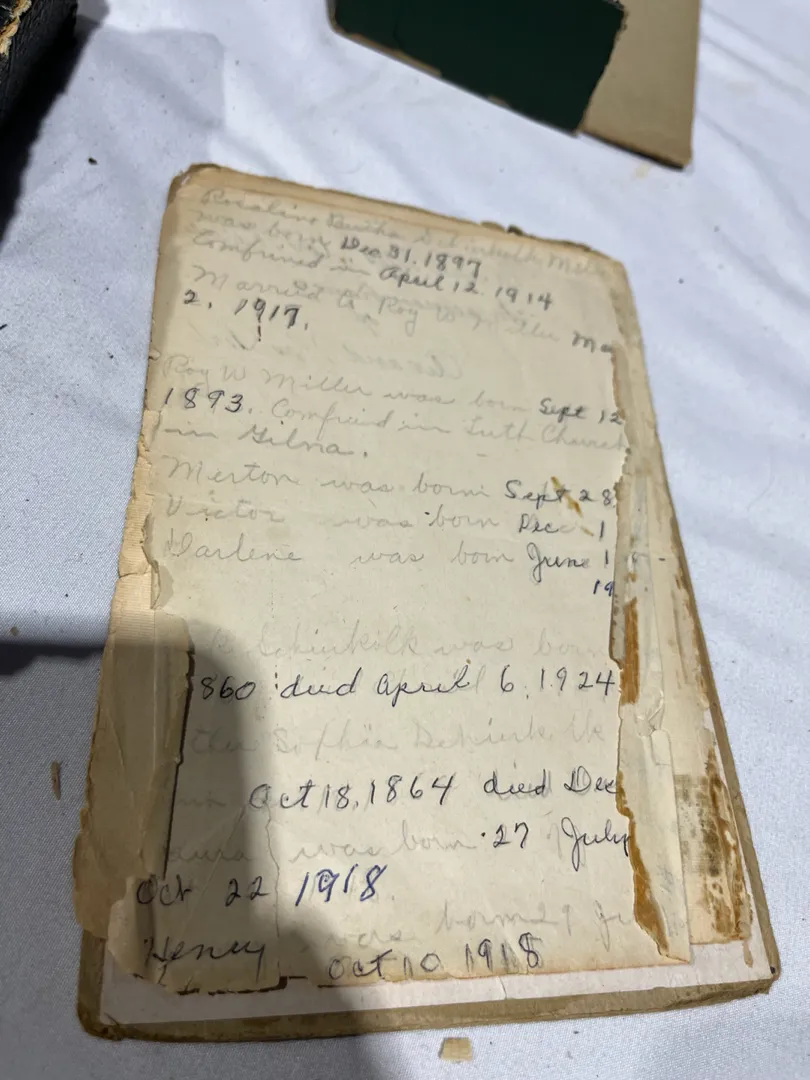 Rosaline Bertha Schinkolk Mill
was born Dec 31. 1897
Comfrined in April 12 1914
Married Roy W. Miller Ma
2, 1917.
Roy W Miller was born Sept 12
1893. Comfried in Luth Church
in Gilna.
Merton was born Sept 28
Victor was born Dec 1
Darlene was born June 1
19
k Schinkolk was born
860 died April 6, 1924
ther Sophia Schinkolk
Oct 18, 1864 died Dec
aura was born 27 July
Oct 22 1918
was born 29 Ju
Henry Oct 10 1918